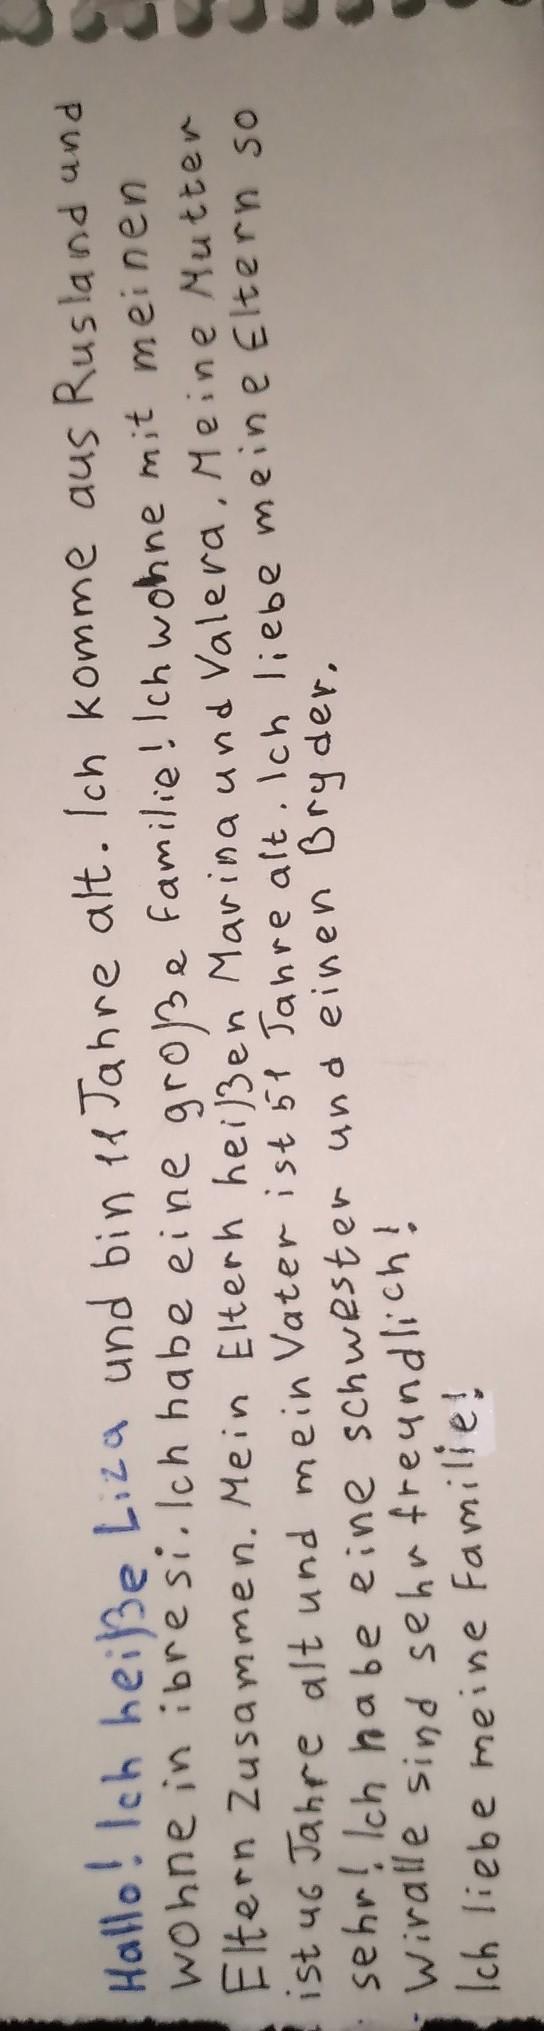 Hallo! Ich heiße Liza und bin 11 Jahre alt. Ich komme aus Rusland und
wohne in ibresi. Ich habe eine große Familie! Ich wohne mit meinen
Eltern Zusammen. Mein Eltern heißen Marina und Valera. Meine Mutter
ist 46 Jahre alt und mein Vater ist 51 Jahre alt. Ich liebe meine Eltern so
sehr! Ich habe eine schwester und einen Bryder.
Wir alle sind sehr freundlich!
Ich liebe meine Familie!